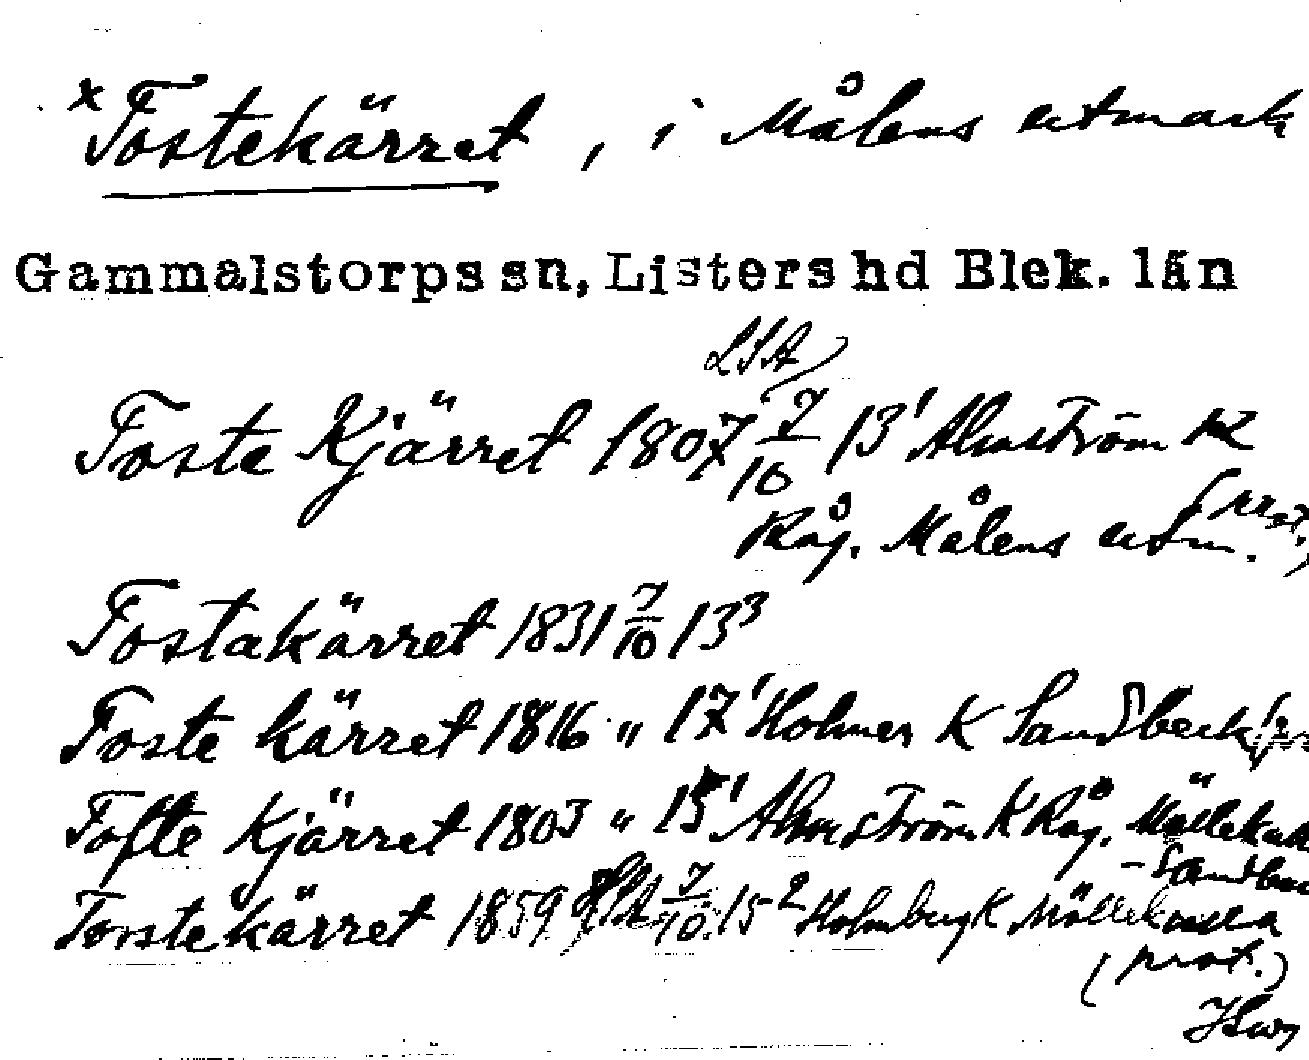 x Tostekärret, i Målens utmark
Gammalstorps sn, Listers hd Blek. län
LSA
Toste Kjärret 1807 7/10 13¹ Almström K
Råg. Målens utm. (prot.)
Tostakärret 1831 7/10 13³
Toste kärret 1816 " 17¹ Holmer K Sandbeck
Tofte Kjärret 1803 " 15¹ Almström K Råg.
Torstekärret 1859 7/10 15² Holmberg K Möllekulla
(prot.)